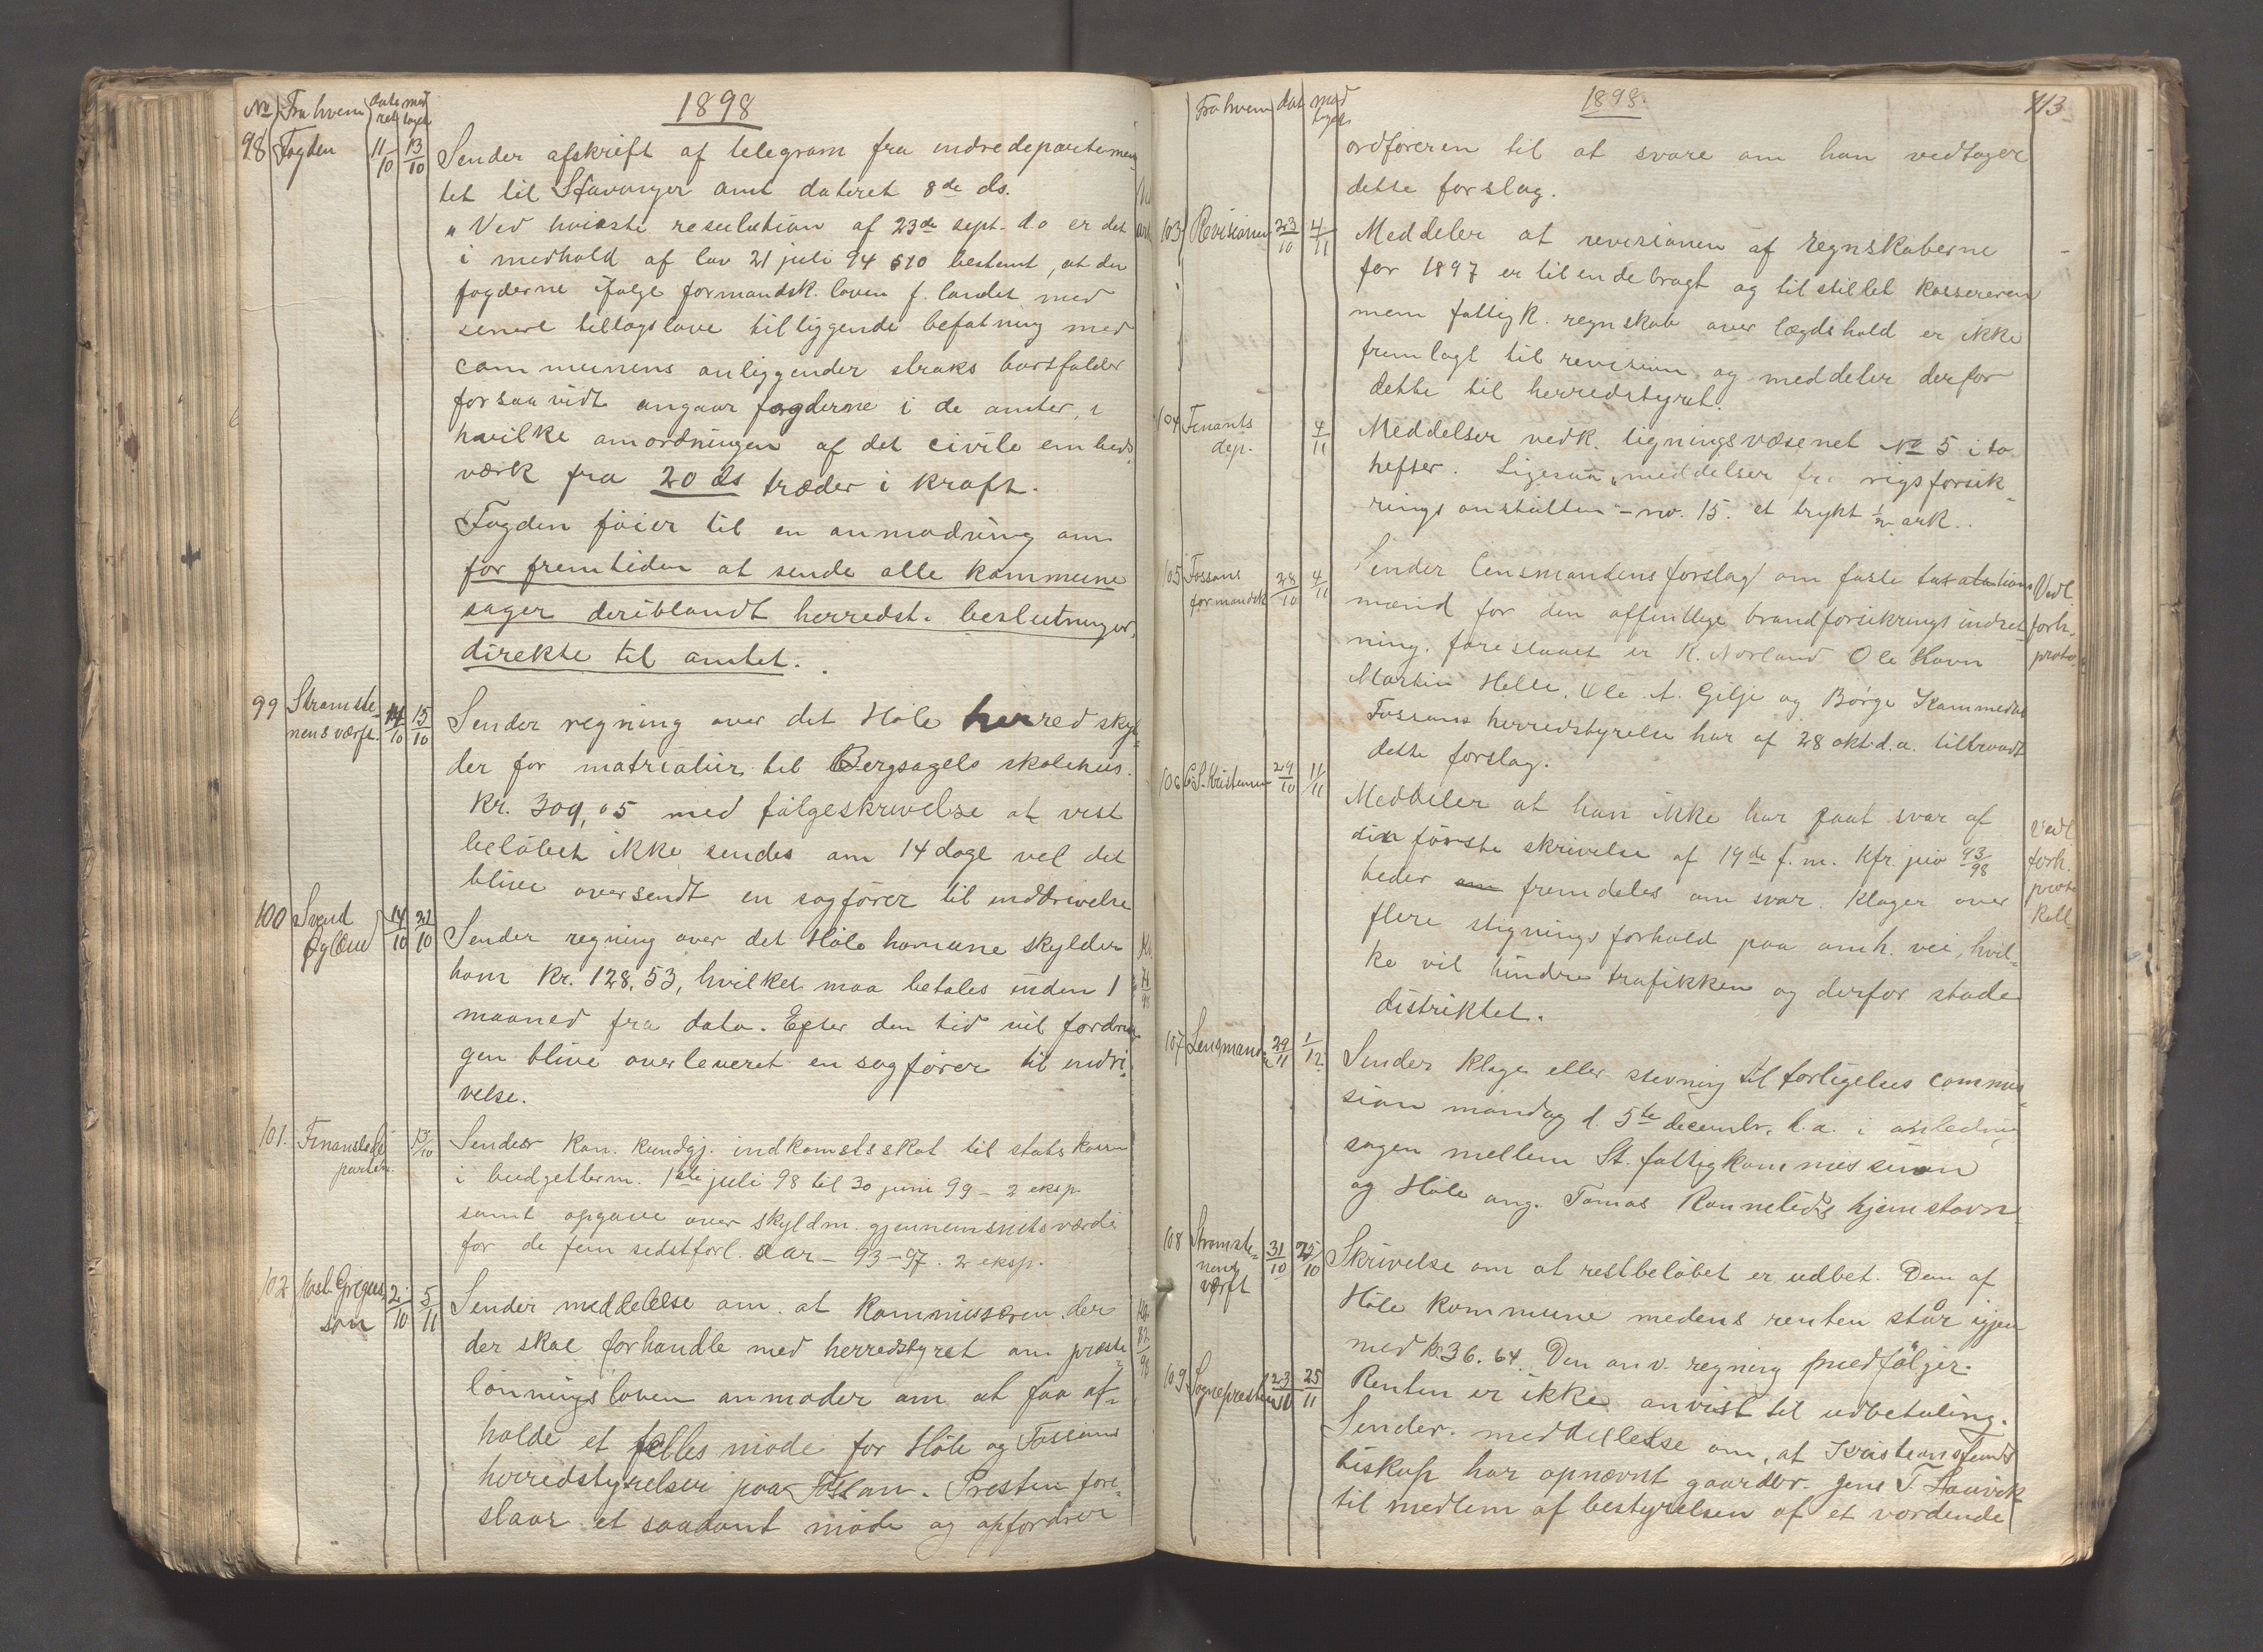 No Fra hvem dateret modtaget 1898
98 Fogden 11/10 13/10 Sender afskrift af telegram fra indredepartemen
tet til Stavanger amt dateret 8de ds.
"Ved høieste resulution af 23de sept. d.o er det
i medhold af lov 21 juli 94 §10 bestemt, at den
fogderne ifølge formandsk. loven f. landet med
senere tillægslove tilliggende befatning med
communens anliggender straks bortfalder
forsaavidt angaar fogderne i de amter, i
hvilke anordningen af det civile embeds
værk fra 20 ds træder i kraft.
Fogden føier til en anmodning om
for fremtiden at sende alle kommune
sager deriblandt herredst. beslutninger,
direkte til amtet.
99 Strømste
nens værft. 14/10 15/10 Sender regning over det Høle herred skyl-
der for matrialier til Bergsagels skolehus.
Kr. 309,05 med følgeskrivelse at vist
beløbet ikke sendes om 14 dage vel det
blive oversendt en sagfører til inddrivelse
100 Svend
Øglænd 14/10 21/10 Sender regning over det Høle komune skylder
ham Kr. 128,53, hvilket maa betales inden 1
maaned fra dato. Efter den tid vil fordrin
gen blive overleveret en sagfører til inddri-
velse.
101. Finantsde
partem. 15/10 Sender kon. kundgj. indkomstsskat til statskassen
i budgetterm. 1ste juli 98 til 30 juni 99 - 2 eksp.
samt opgave over skyldm. gjennemsnitsværdi
for de fem sidstforl. aar - 93-97. 2 eksp.
102 Kast. Gregus
son 2/10 5/11 Sender meddelelse om at kommissæren der
der skal forhandle med herredstyret om præste
lønningsloven anmoder om at faa af-
holde et fælles møde for Høle og Fossans
herredstyrelser paa Fossan. Presten fore-
slaar et saadant møde og opfordrer
Fra hvem dat modtaget 1898. 113
ordføreren til at svare om han vedtager
dette forslag.
103 Revisionen 23/10 4/11 Meddeler at revisionen af regnskaberne
for 1897 er tilendebragt og tilstillet kassereren
men fattigk. regnskab over lægdshold er ikke
fremlagt til revision og meddeler derfor
dette til herredstyret.
104 Finants
dep. 4/11 Meddelser vedk. ligningsvæsenet No 5 i to
hefter. Ligesaa "meddelser fr. rigsforsik-
ringsanstalten" - no. 15. et trykt 1/2 ark.
105 Fossans
formandsk 28/10 4/11 Sender lensmandens forslag om faste taxations Vedl.
mænd for den offentlige brandforsikrings indret forh.
ning. foreslaaet er K. Norland Ole Havn proto
Martin Helle, Ole A. Gilje og Børge Kommedal
Fossans herredstyrelse har af 28 okt. d.a. tiltraadt
dette forslag.
106 C. S. Kristensen 29/10 11/11 Meddeler at han ikke har faat svar af Vedl
din første skrivelse af 19de f.m. Kfr. jno 93/98 forh.
beder om fremdeles om svar. Klager over proto
flere stigningsforhold paa omh. vei, hvil- koll
ke vil hindre trafikken og derfor skade
distriktet.
107 Lensmanden 29/11 1/12 Sender klage eller stevning til forligelses commis-
sion mandag d. 5te decembr. d.a. i anledning
sagen mellem St. fattigkommission
og Høle ang. Tomas Ranneleds hjemstavn
108 Strømste-
nens
værft 31/10 25/10 Skrivelse om at restbeløbet er udbet. Dem af
Høle kommune medens renten står igjen
med kr. 36.64. Den anv. regning medfølger.
Renten er ikke anvist til udbetaling.
109 Sognepresten 23/10 25/11 Sender meddelelse om, at Kristiansands
biskop har opnævnt gaardbr. Jens T. Haavik
til medlem af bestyrelsen af et vordende